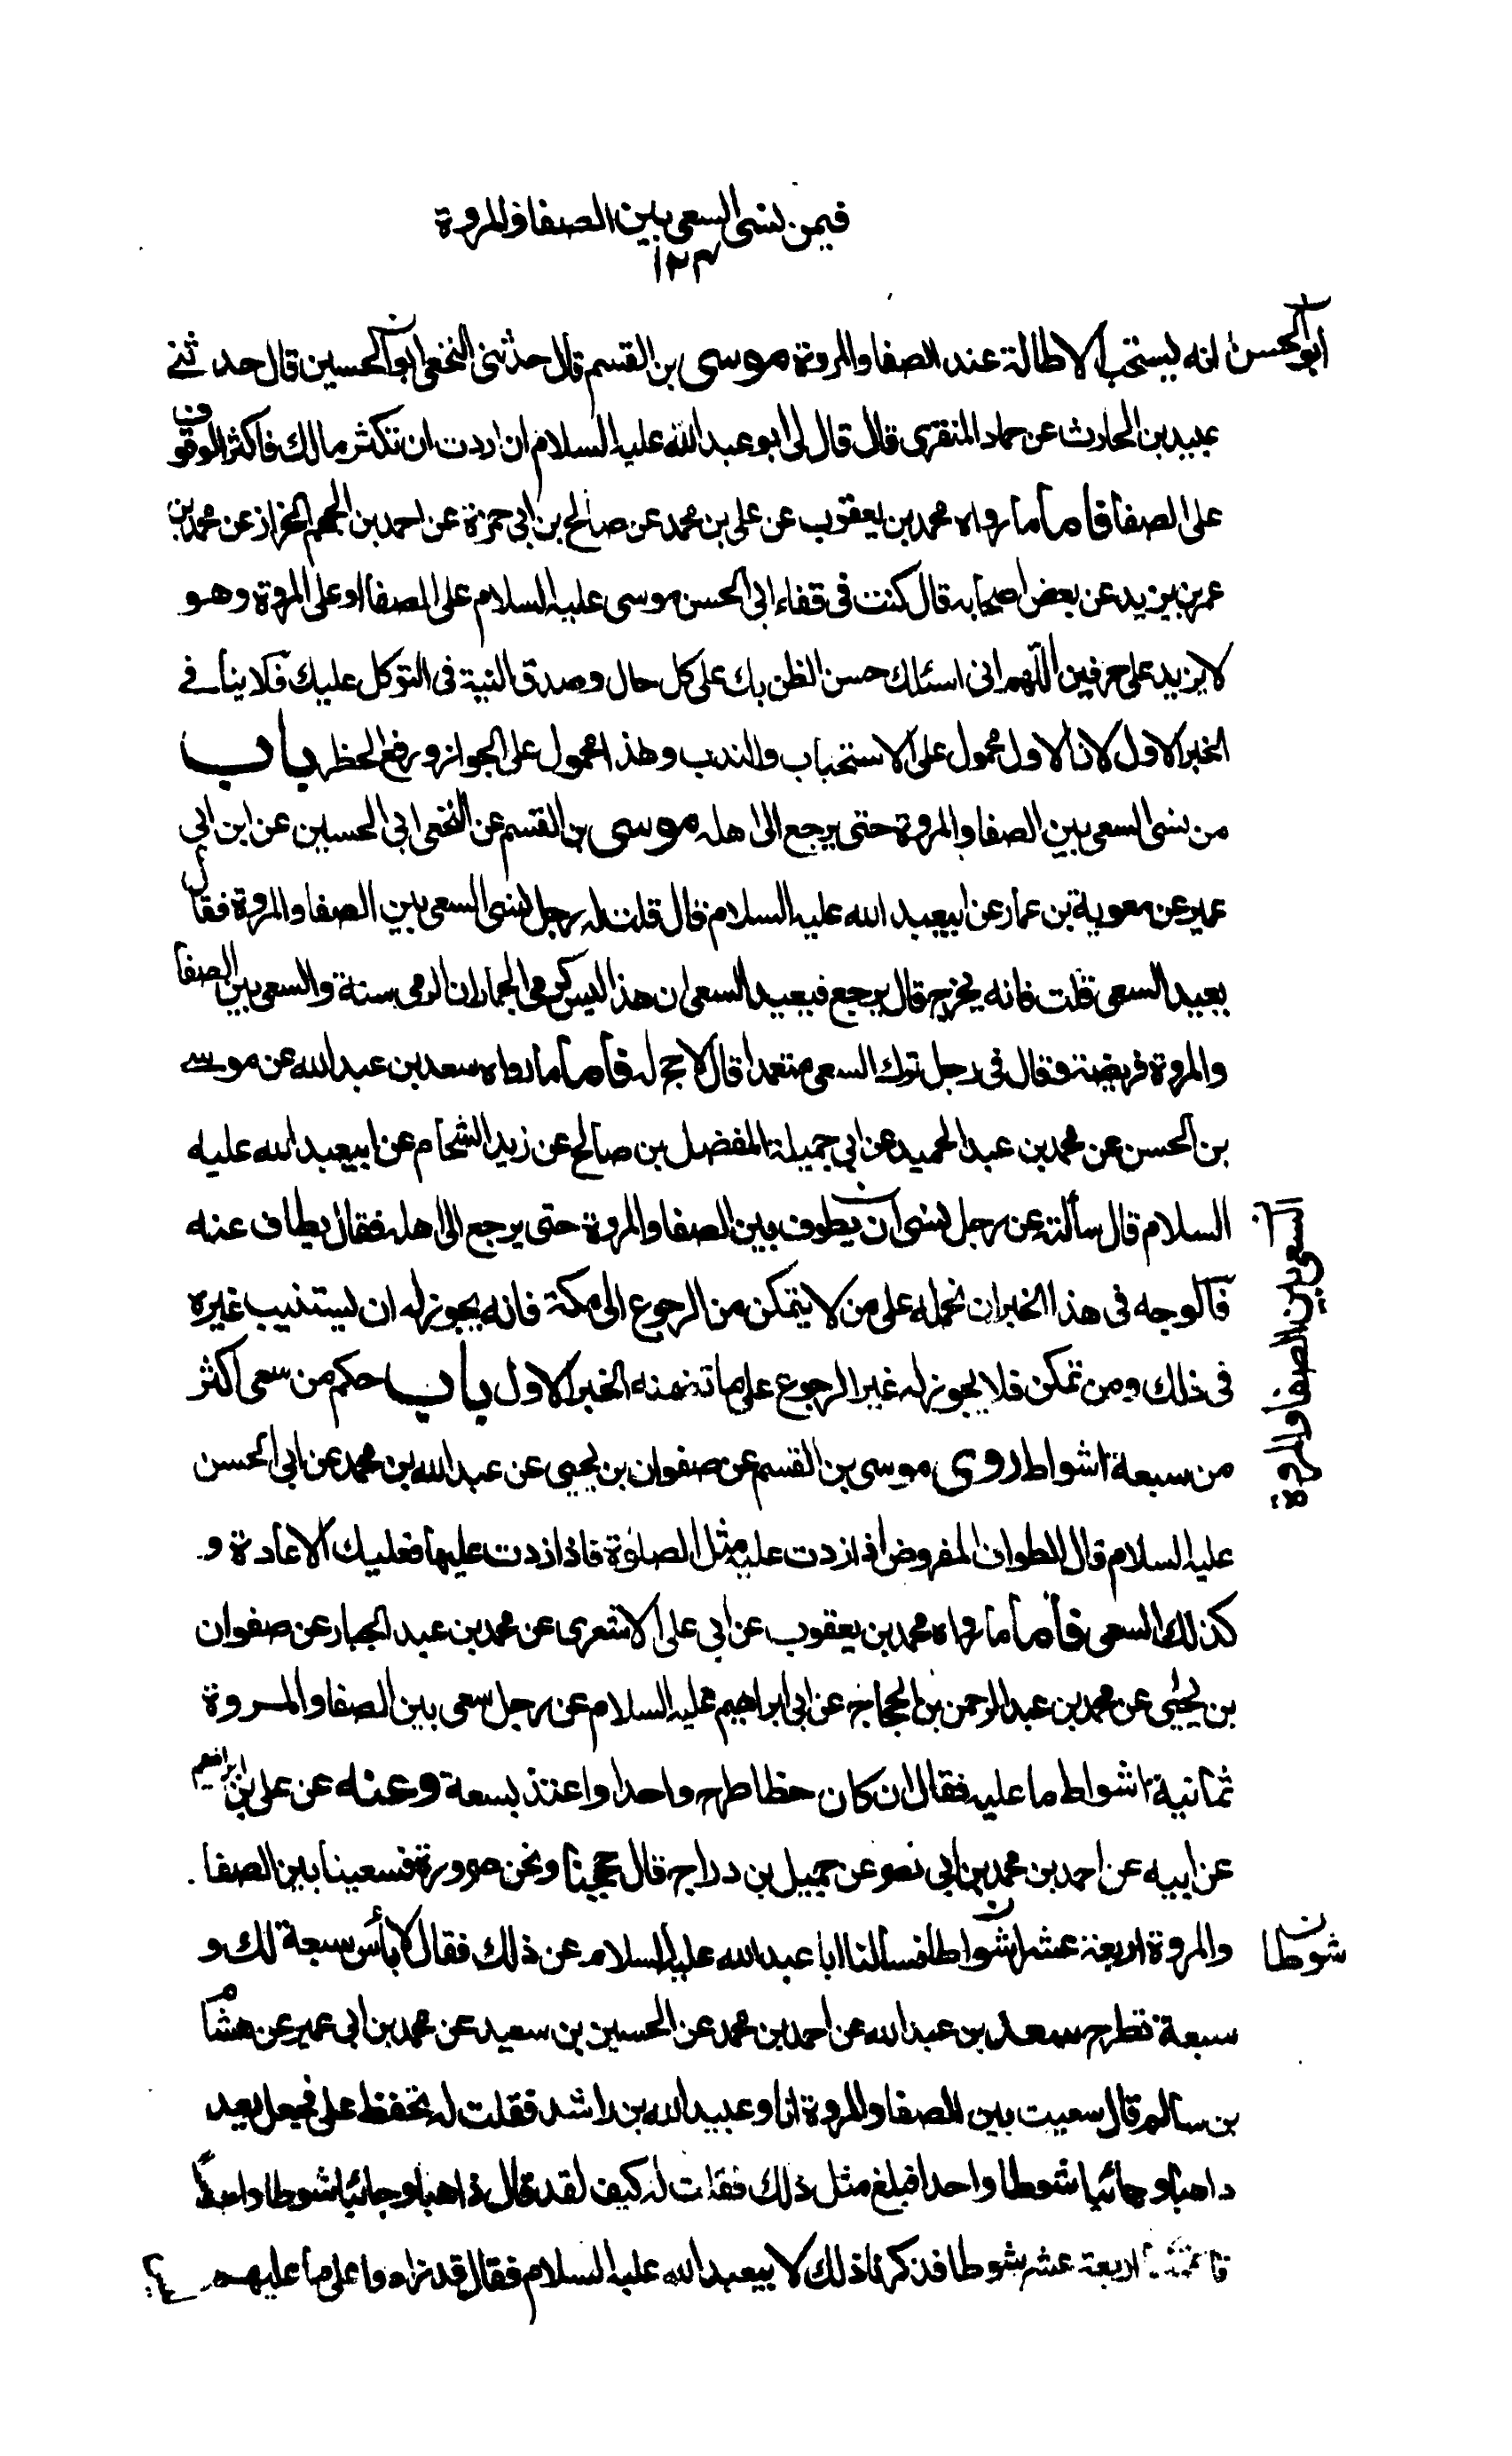 فيمن نسى السعى بين الصفا والمروة
١٢٣
انه يستحب الاطالة عند الصفا والمروة موسى بن القسم قال حدثنى النخعى ابو الحسين قال حدثنى
عبيد بن الحارث عن حماد المنقرى قال قال لى ابو عبد الله عليه السلام ان اردت ان تكثر مالك فاكثر الوقوف
على الصفا فاما ما رواه محمد بن يعقوب عن على بن محمد عن صالح بن ابى حمزة عن احمد بن الجهم الخزاز عن محمد بن
عمر بن يزيد عن بعض اصحابه قال كنت فى قفاء ابى الحسن موسى عليه السلام على الصفا او على المروة وهو
لا يزيد على حرفين اللهم انى اسئلك حسن الظن بك على كل حال وصدق النية فى التوكل عليك فلا ينافى
الخبر الاول لان الاول محمول على الاستحباب والندب وهذا محمول على الجواز ورفع الحظر باب
من نسى السعى بين الصفا والمروة حتى يرجع الى اهله موسى بن القسم عن النخعى ابى الحسين عن ابن ابى
عمير عن معوية بن عمار عن ابيعبد الله عليه السلام قال قلت له رجل نسى السعى بين الصفا والمروة فقال
يعيد السعى قلت فانه يخرج قال يرجع فيعيد السعى ان هذا ليس كرمى الجمار ان الرمى سنة والسعى بين الصفا
والمروة فريضة وقال فى رجل ترك السعى متعمدا قال لا حج له فاما ما رواه سعد بن عبد الله عن موسى
بن الحسن عن محمد بن عبد الحميد عن ابى جميلة المفضل بن صالح عن زيد الشحام عن ابيعبد الله عليه
السلام قال سألته عن رجل نسى ان يطوف بين الصفا والمروة حتى يرجع الى اهله فقال يطاف عنه
فالوجه فى هذا الخبر ان نحمله على من لا يتمكن من الرجوع الى مكة فانه يجوز له ان يستنيب غيره
فى ذلك ومن تمكن فلا يجوز له غير الرجوع على ما تضمنه الخبر الاول باب حكم من سعى اكثر
من سبعة اشواط روى موسى بن القسم عن صفوان بن يحيى عن عبد الله بن محمد عن ابى الحسن
عليه السلام قال الطواف المفروض اذا زدت عليه مثل الصلوة فاذا زدت عليها فعليك الاعادة و
كذلك السعى فاما ما رواه محمد بن يعقوب عن ابى على الاشعرى عن محمد بن عبد الجبار عن صفوان
بن يحيى عن محمد بن عبد الرحمن بن الحجاج عن ابى ابراهيم عليه السلام عن رجل سعى بين الصفا والمروة
ثمانية اشواط ما عليه فقال ان كان خطا طرح واحدا واعتد بسعة وعنه عن على بن ابراهيم
عن ابيه عن احمد بن محمد بن ابى نصر عن جميل بن دراج قال حججنا ونحن صرورة فسعينا بين الصفا
والمروة اربعة عشر اشواطا فسألنا ابا عبد الله عليه السلام عن ذلك فقال لا بأس سبعة لك و
سبعة تطرح سعد بن عبد الله عن احمد بن محمد عن الحسين بن سعيد عن محمد بن ابى عمير عن هشام
بن سالم قال سعيت بين الصفا والمروة انا وعبيد الله بن راشد فقلت له تحفظ على فجعل يعد
ذاهبا وجائيا شوطا واحدا فبلغ مثل ذلك فقلت له كيف تعد قال ذاهبا وجائيا شوطا واحدا
اربعة عشر شوطا فذكرنا ذلك لابيعبد الله عليه السلام فقال قد زادوا على ما عليهم
ابو الحسن
السعى بين الصفا والمروة
شوطا